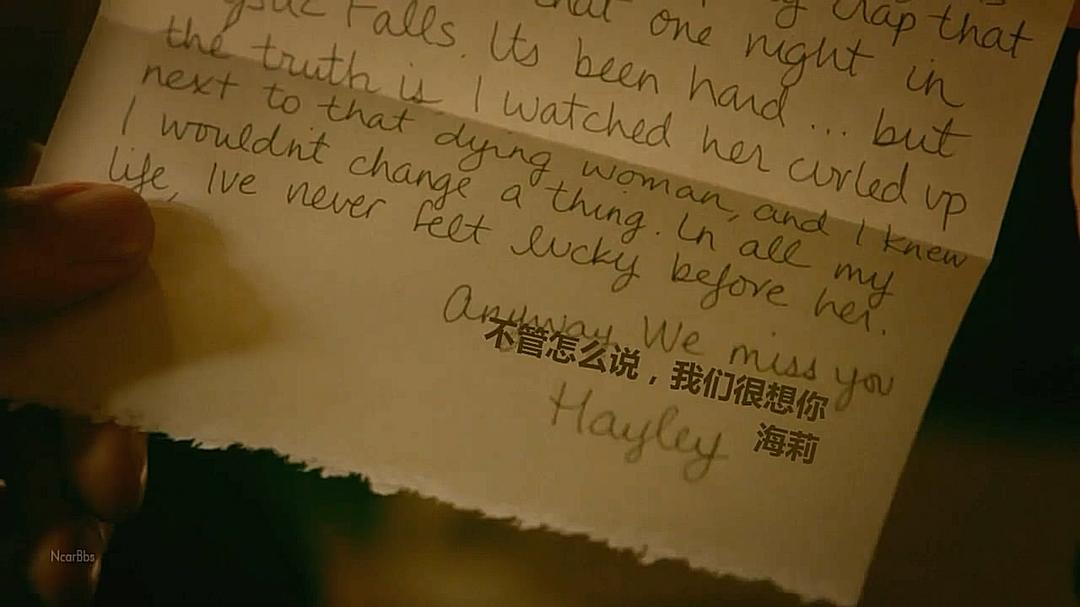 that
that one night in
Falls. Its been hard ... but
the truth is I watched her curled up
next to that dying woman, and I knew
I wouldnt change a thing. In all my
life, Ive never felt lucky before her.
Anyway We miss you
不管怎么说，我们很想你
Hayley
海莉
NcarBbs